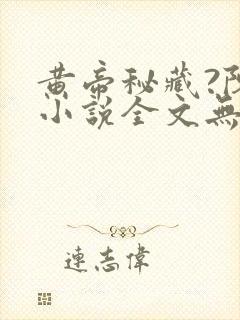 黄帝秘藏?
小說全文無
連志偉